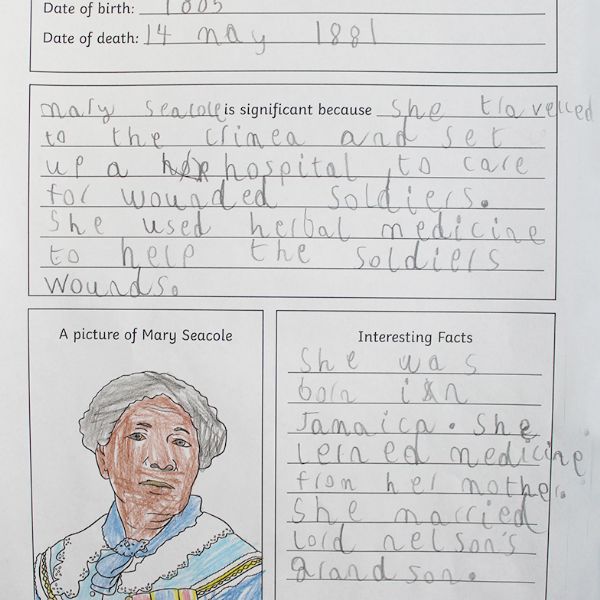 Date of birth: 1805
Date of death: 14 may 1881
mary seacole is significant because she travelled
to the crimea and set
up a hospital to care
for wounded soldiers.
She used herbal medicine
to help the soldiers
wounds.
A picture of Mary Seacole
Interesting Facts
She was
born in
Jamaica. She
lerned medicine
from her mother.
She married
lord nelson's
grandson.